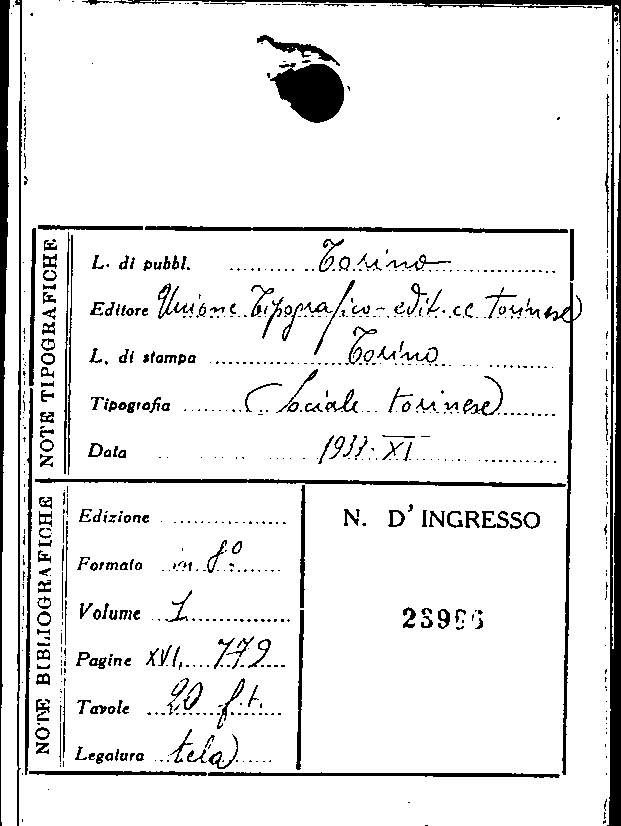 NOTE TIPOGRAFICHE
L. di pubbl. Torino
Editore Unione Tipografico-editrice torinese
L. di stampa Torino
Tipografia (Sociale torinese)
Data 1933-XI
NOTE BIBLIOGRAFICHE
Edizione
Formato in 8º
Volume 1
Pagine XVI, 779
Tavole 20 f.t.
Legatura tela
N. D'INGRESSO